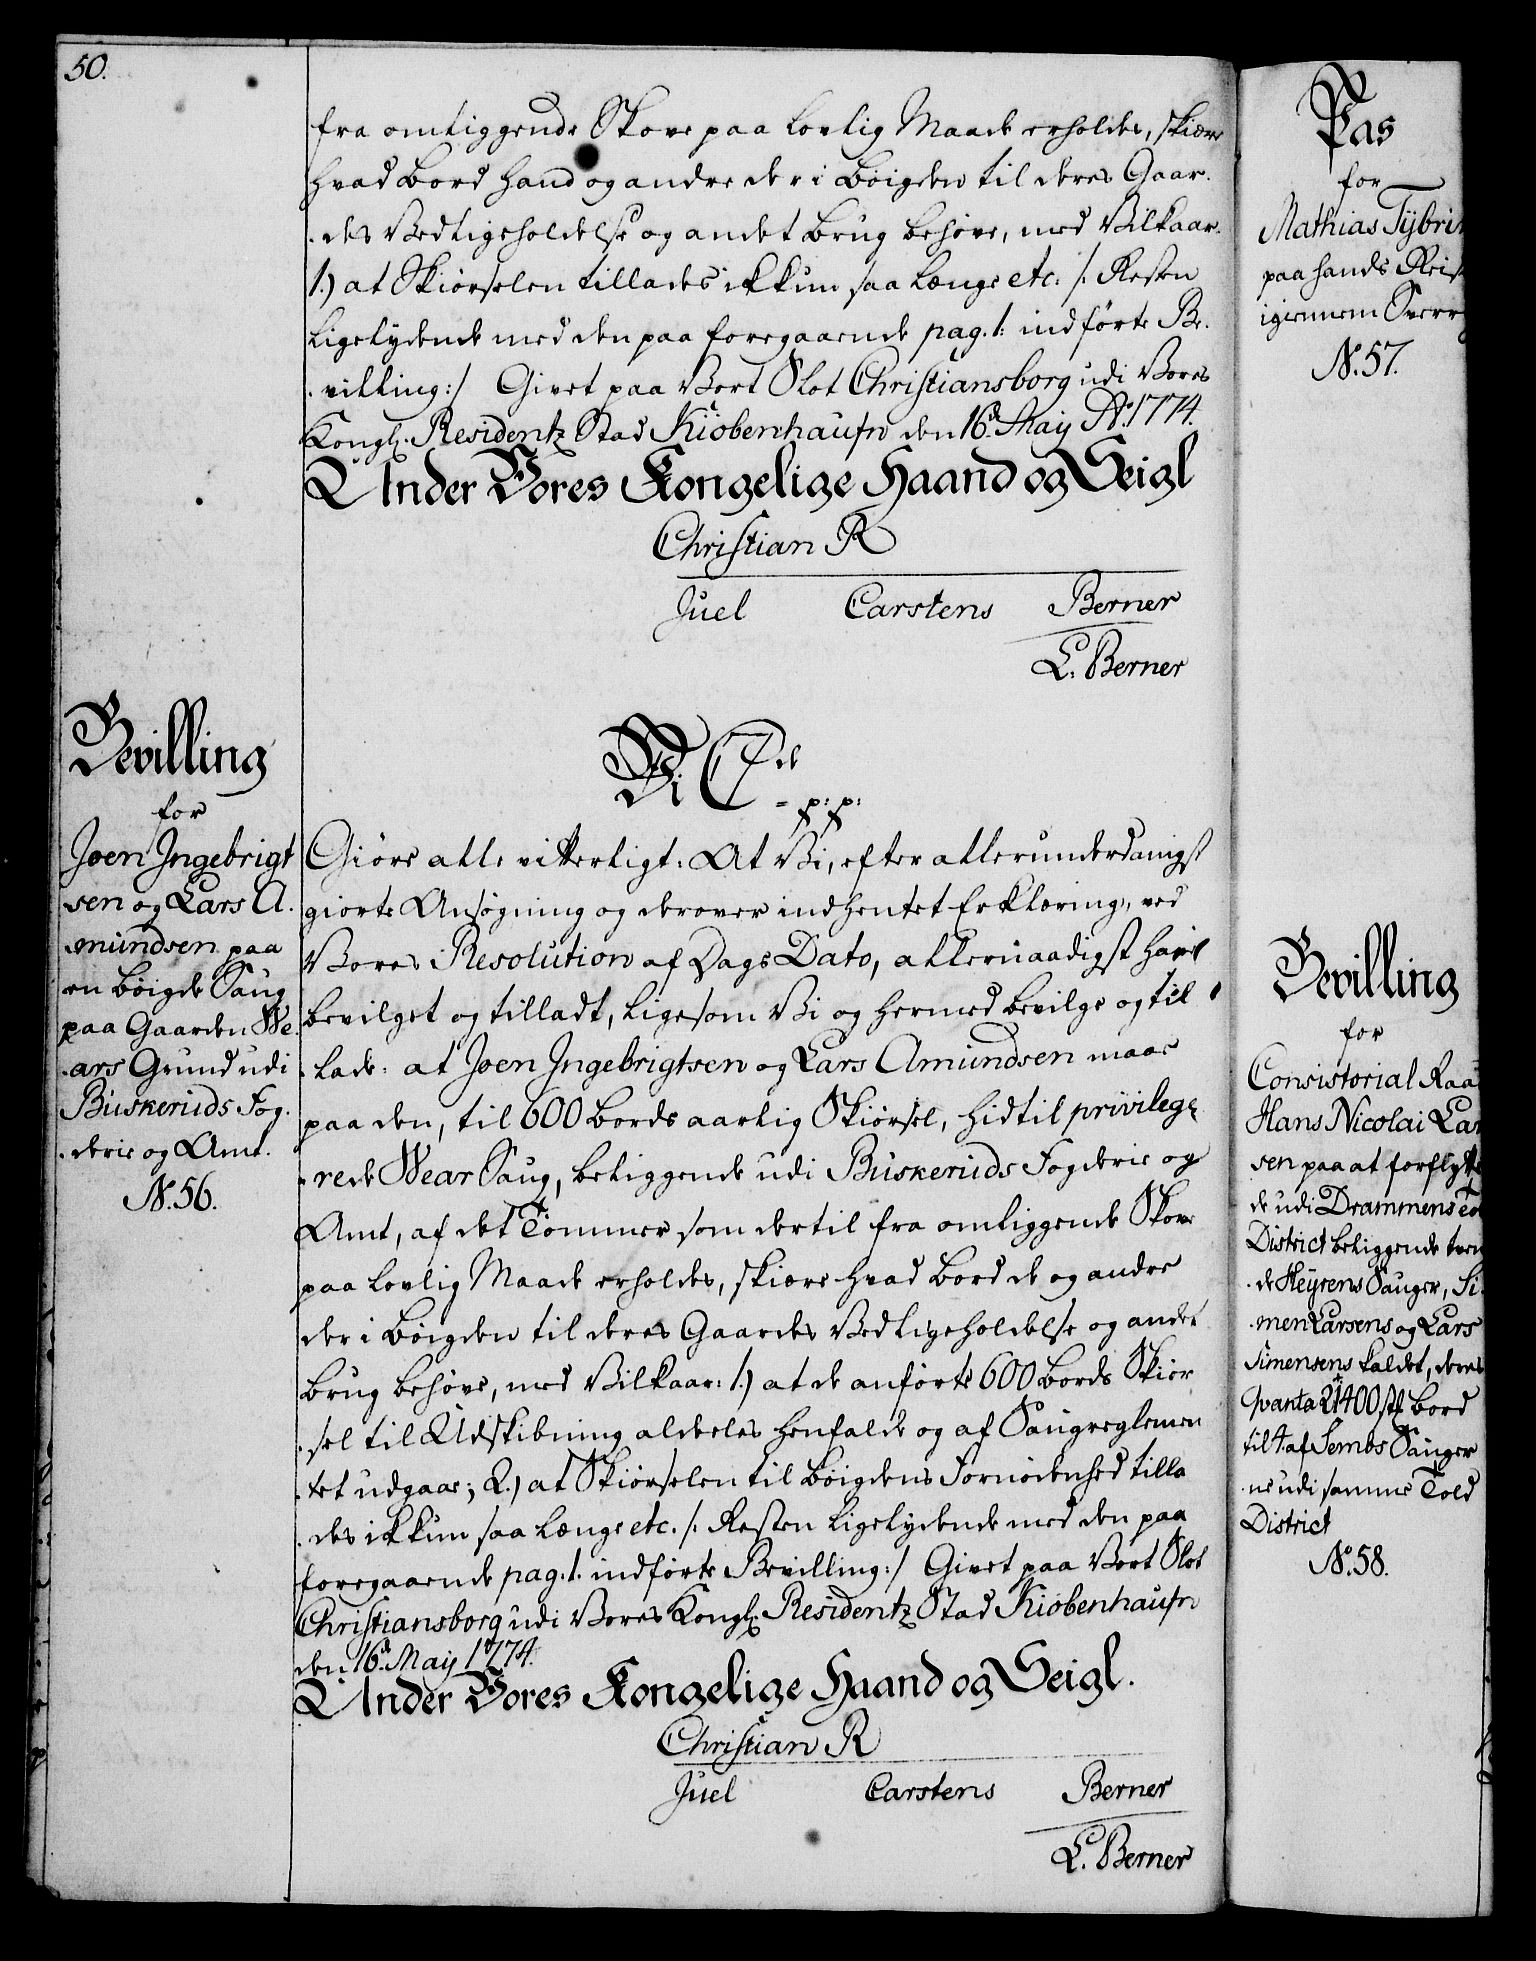 50.
fra omliggende Skove paa lovlig Maade erholdes, skiære
hvad Bord hand og andre der i Bøigden til deres Gaar-
-des Vedligeholdelse og andet Brug behøve, med Vilkaar.
1.) at Skiørselen tillades ikkun saa længe etc: /: Resten
ligelydende med den paa foregaaende pag. 1. indførte Be-
-villing :/ Givet paa Vort Slot Christiansborg udi Vores
Kongl. Residentz Stad Kiøbenhaufn den 16d. May Ao. 1774.
Under Vores Kongelige Haand og Seigl
Christian R
Juel Carstens Berner
L. Berner
Bevilling
for
Joen Ingebrigt
sen og Lars A-
-mundsen paa
en Bøigde Saug
paa Gaarden We-
-ars Grund udi
Buskeruds Fog-
-derie og Amt.
N. 56.
Vi C 7de
= p: p:
Giøre alle vitterligt: At Vi, efter allerunderdanigst
giorte Ansøgning og derover indhentet Erklæring, ved
Vores Resolution af Dags Dato, allernaadigst have
bevilget og tilladt, ligesom Vi og hermed bevilge og til
-lade: at Joen Ingebrigtsen og Lars Amundsen maae
paa den, til 600 Bords aarlig Skiørsel, hidtil privilege-
-rede Wear Saug, beliggende udi Buskeruds Fogderie og
Amt, af det Tømmer som dertil fra omliggende Skove
paa lovlig Maade erholdes, skiære hvad Bord de og andre
der i Bøigden til deres Gaardes Vedligeholdelse og andet
Brug behøve, med Vilkaar: 1.) at de anførte 600 Bords Skiør
-sel til Udskibning aldeles henfalde og af Saugreglemen
-tet udgaae; 2.) at Skiørselen til Bøigdens Fornødenhed tilla
-des ikkun saa længe etc. /: Resten ligelydende med den paa
foregaaende pag. 1. indførte Bevilling :/ Givet paa Vort Slot
Christiansborg udi Vores Kongl. Residentz Stad Kiøbenhaufn
den 16d. May 1774.
Under Vores Kongelige Haand og Seigl.
Christian R
Juel Carstens Berner
L. Berner
Pas
for
Mathias Tybrin
paa hands Reise
igiennem Sverr
N. 57.
Bevilling
for
Consistorial Raa
Hans Nicolai Lar
sen paa at forflytte
de udi Drammens Tol
District beliggende tven
-de Heyrens Sauger, Si-
-men Larsens og Lars
Simensens kaldet, deres
Qvanta 21400 st. Bord
til 4 af Sembs Sauger
-ne udi samme Told
District
N. 58.